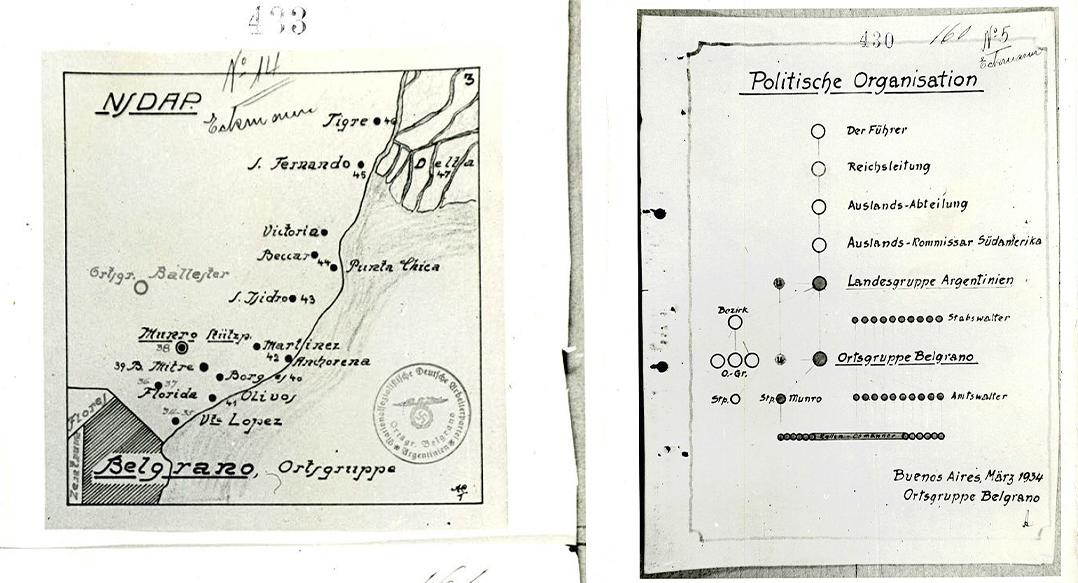 433
Nº 14
3
NSDAP.
Eckemann
Tigre 46
S. Fernando
45
Delta
47
Victoria
Beccar
44
Punta Chica
Ortsgr. Ballester
S. Isidro 43
Munro Stützp.
38
Martinez
42
Anchorena
39 B. Mitre
Borges 40
36 37
Florida
41 Olivos
34-35
Vte Lopez
Flores
Zentrum
Nationalsozialistische Deutsche Arbeiterpartei
Ortsgr. Belgrano
Argentinien
Belgrano, Ortsgruppe
430
160
Nº 5
Eckemann
Politische Organisation
Der Führer
Reichsleitung
Auslands-Abteilung
Auslands-Kommissar Südamerika
U
Landesgruppe Argentinien
Bezirk
Stabswalter
U
Ortsgruppe Belgrano
O.-Gr.
Stp.
Stp. Munro
Amtswalter
Buenos Aires, März 1934
Ortsgruppe Belgrano